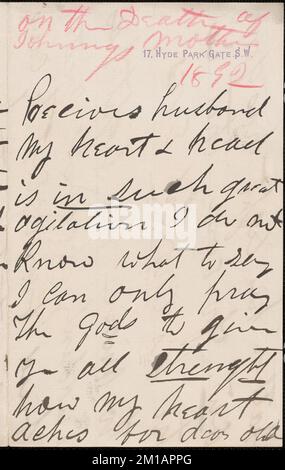 on the Death of
Johnny's Mother
17, HYDE PARK GATE. S.W.
1892
Precious husband
My heart & head
is in such great
agitation I do not
Know what to say
I can only pray
the gods to give
you all strength
how my heart
aches for dear old
alamy
alamy
Image ID: 2M1APPG
www.alamy.com